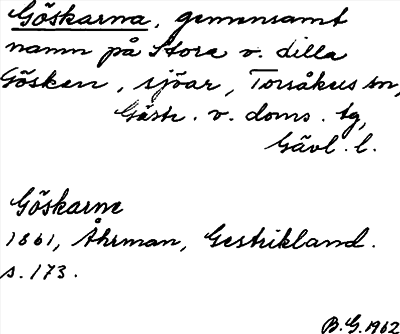 Göskarna, gemensamt
namn på Stora o. Lilla
Gösken, sjöar, Torsåkers sn,
Gästr. v. doms. tg,
Gävl. l.
Göskarne
1861, Åhrman, Gestrikland.
s. 173.
B.G. 1962